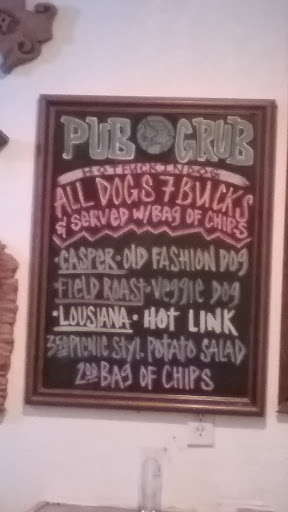 PUB GRUB
HOTFUCKINDOG
ALL DOGS 7 BUCKS
& SERVED W/BAG OF CHIPS
·CASPER·OLD FASHION DOG
·FIELD ROAST·VEGGIE DOG
·LOUSIANA·HOT LINK
3.50 PICNIC STYL. POTATO SALAD
2.00 BAG OF CHIPS